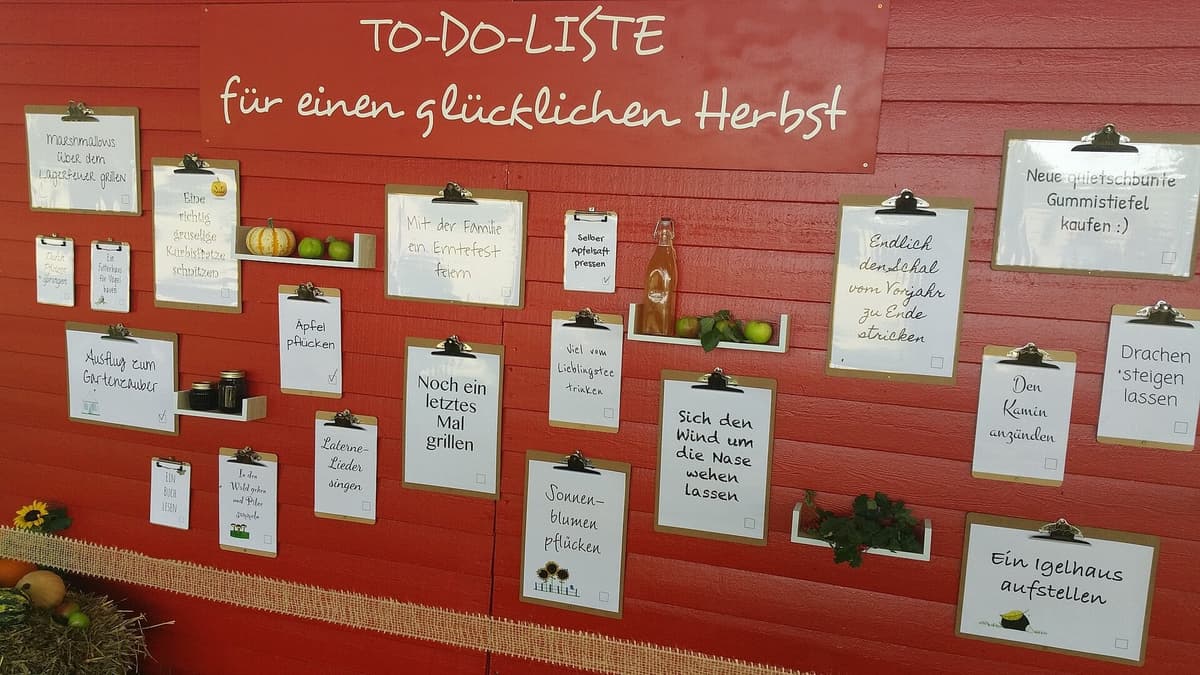 TO-DO-LISTE
für einen glücklichen Herbst
Marshmallows
über dem
Lagerfeuer grillen
Eine
richtig
gruselige
Kürbisfratze
schnitzen
Mit der Familie
ein Erntefest
feiern
Selber
Apfelsaft
pressen
Endlich
den Schal
vom Vorjahr
zu Ende
stricken
Neue quietschbunte
Gummistiefel
kaufen :)
Ein
Futterhaus
für Vögel
bauen
Äpfel
pflücken
Ausflug zum
Gartenzauber
Noch ein
letztes
Mal
grillen
Viel vom
Lieblingstee
trinken
Sich den
Wind um
die Nase
wehen
lassen
Den
Kamin
anzünden
Drachen
steigen
lassen
EIN
BUCH
LESEN
In den
Wald gehen
und Pilze
sammeln
Laterne-
Lieder
singen
Sonnen-
blumen
pflücken
Ein Igelhaus
aufstellen